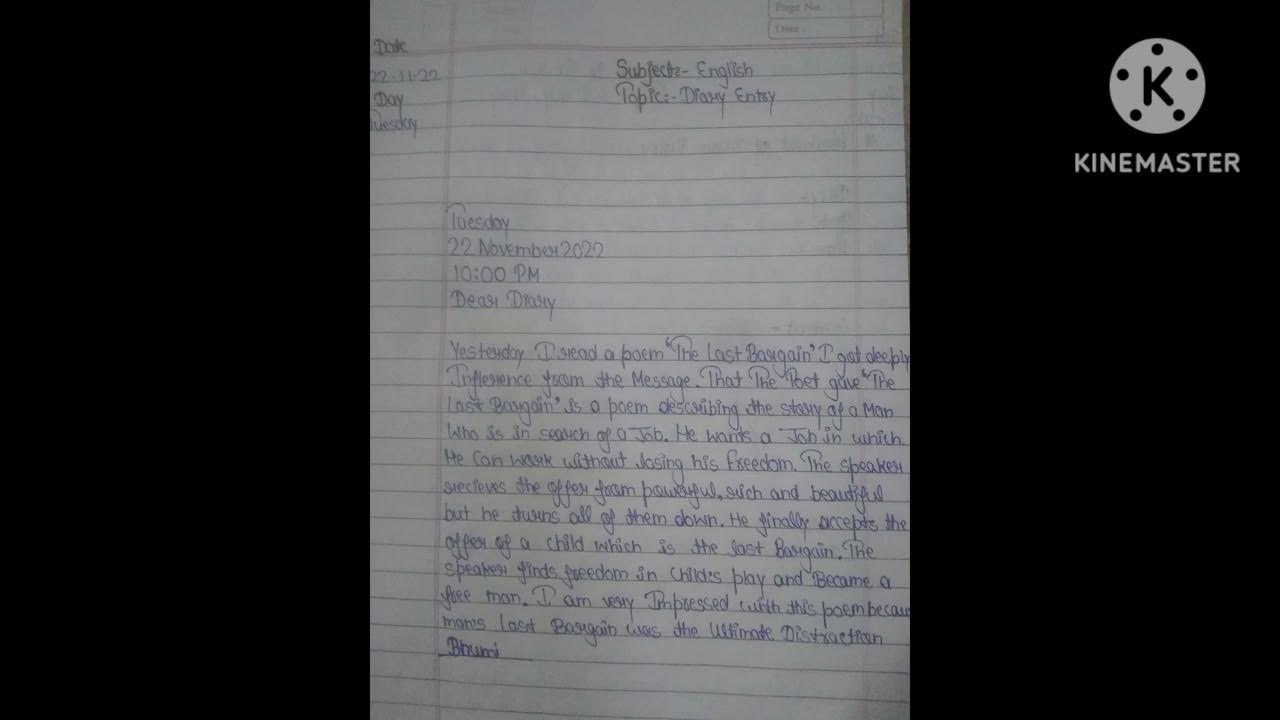 Page No.
Date:
Date
22-11-22
Day
Tuesday
Subject:- English
Topic:- Diary Entry
K
KINEMASTER
Tuesday
22 November 2022
10:00 PM
Dear Diary
Yesterday I read a poem "The Last Bargain" I got deeply
Inflerence from the Message. That The Poet gave "The
Last Bargain" is a poem describing the story of a Man
Who is in search of a Job. He wants a Job in which
He can work without losing his freedom. The speaker
recieves the offer from powerful, rich and beautiful
but he turns all of them down. He finally accepts the
offer of a child which is the last Bargain. The
speaker finds freedom in Child's play and Became a
free man. I am very Impressed with this poem becau
mans Last Bargain was the Ultimate Distraction
Bhumi